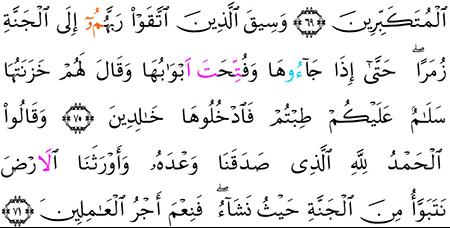 اَ۬لْمُتَكَبِّرِينَ ۝٦٩ وَسِيقَ اَ۬لَّذِينَ اَ۪تَّقَوْاْ رَبَّهُمُۥٓ إِلَى اَ۬لْجَنَّةِ
زُمَرًاۖ حَتَّىٰٓ إِذَا جَآءُوهَا وَفُتِّحَتَ اَبْوَٰبُهَا وَقَالَ لَهُمْ خَزَنَتُهَا
سَلَٰمٌ عَلَيْكُمْ طِبْتُمْ فَادْخُلُوهَا خَٰلِدِينَ ۝٧٠ وَقَالُواْ
اُ۬لْحَمْدُ لِلهِ اِ۬لَّذِى صَدَقَنَا وَعْدَهُۥ وَأَوْرَثَنَا اَ۬لَارْضَ
نَتَبَوَّأُ مِنَ اَ۬لْجَنَّةِ حَيْثُ نَشَآءُۖ فَنِعْمَ أَجْرُ اُ۬لْعَٰمِلِينَ ۝٧١